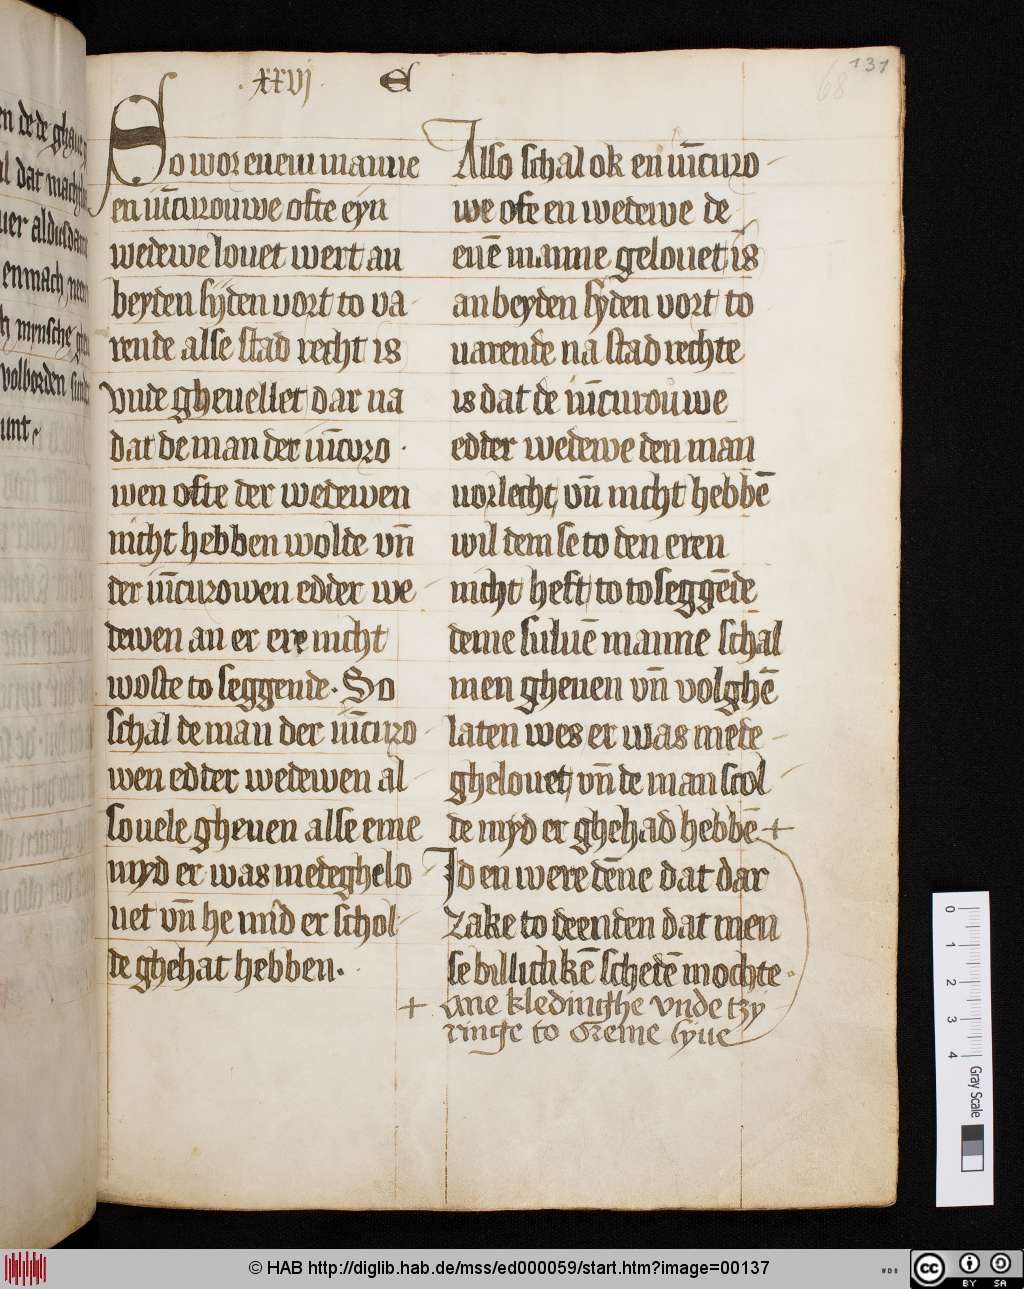 · xxvj · E
131
68
So wor eneme manne
en iu̅cvrouwe ofte eyn
wedewe louet wert an
beyden syden vort to va
rende alse stad recht is
vnde gheuellet dar na
dat de man der iu̅cvro ·
wen ofte der wedewen
nicht hebben wolde vn̅
der iu̅cvrowen edder we
dewen an er ere nicht
woste to seggende · So
schal de man der iu̅cvro
wen edder wedewen al
so uele gheuen alse eme
myd er was medeghelo
uet vn̅ he mid er schol
de ghehat hebben ·
Also schal ok en iu̅cvro
we ofe en wedewe de
eue̅ manne gelouet is
an beyden syden vort to
uarende na stad rechte
is dat de iu̅cvrouwe
edder wedewe den man
uorlecht, vn̅ nicht hebbe̅
wil dem se to den eren
nicht heft, to to segge̅de
deme sulue̅ manne schal
men gheuen vn̅ volghe̅
laten wes er was mede
ghelouet, vn̅ de man scol
de myd er ghehad hebbe̅ +
Id en were de̅ne dat dar
zake to deenden dat men
se billichike̅ schede̅ mochte ·
+ ane kledinghe vnde tzy
ringe to oreme lyue
en de de ghaue
dat mach
uer aldusdane
en mach, nen
mynsche
volborden sunder
unt
0 1 2 3 4
Gray Scale
© HAB http://diglib.hab.de/mss/ed000059/start.htm?image=00137
WDB
cc BY SA